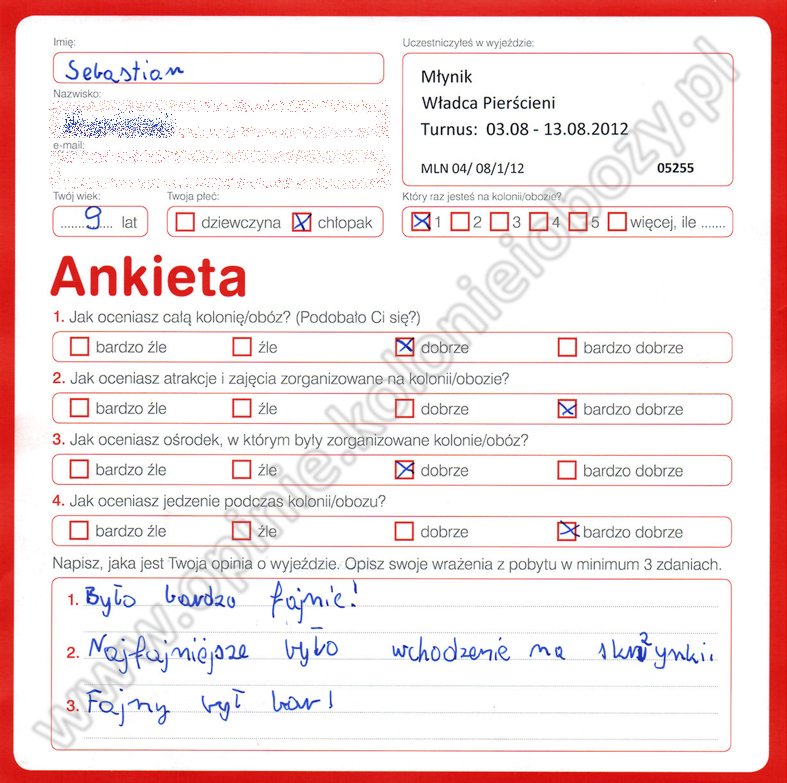 Imię:
Sebastian
Uczestniczyłeś w wyjeździe:
Młynik
Władca Pierścieni
Turnus: 03.08 - 13.08.2012
MLN 04/ 08/1/12 05255
Nazwisko:
e-mail:
Twój wiek:
9 lat
Twoja płeć:
dziewczyna chłopak
Który raz jesteś na kolonii/obozie?
1 2 3 4 5 więcej, ile .......
Ankieta
1. Jak oceniasz całą kolonię/obóz? (Podobało Ci się?)
bardzo źle źle dobrze bardzo dobrze
2. Jak oceniasz atrakcje i zajęcia zorganizowane na kolonii/obozie?
bardzo źle źle dobrze bardzo dobrze
3. Jak oceniasz ośrodek, w którym były zorganizowane kolonie/obóz?
bardzo źle źle dobrze bardzo dobrze
4. Jak oceniasz jedzenie podczas kolonii/obozu?
bardzo źle źle dobrze bardzo dobrze
Napisz, jaka jest Twoja opinia o wyjeździe. Opisz swoje wrażenia z pobytu w minimum 3 zdaniach.
1. Było bardzo fajnie!
2. Najfajniejsze było wchodzenie na skrzynki.
3. Fajny był bar!
www.opinie.kolonieiobozy.pl